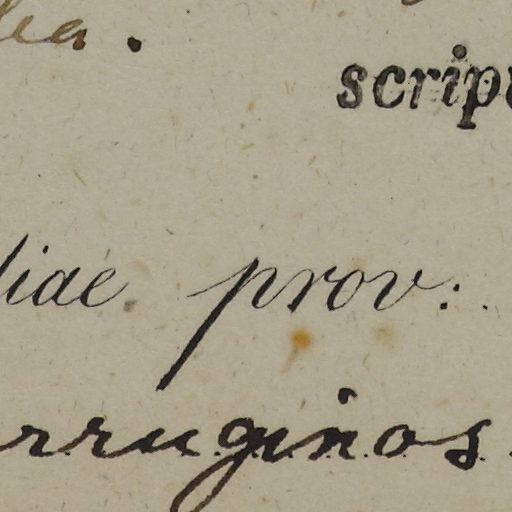 lea.
scrip
liae prov:
rruginos